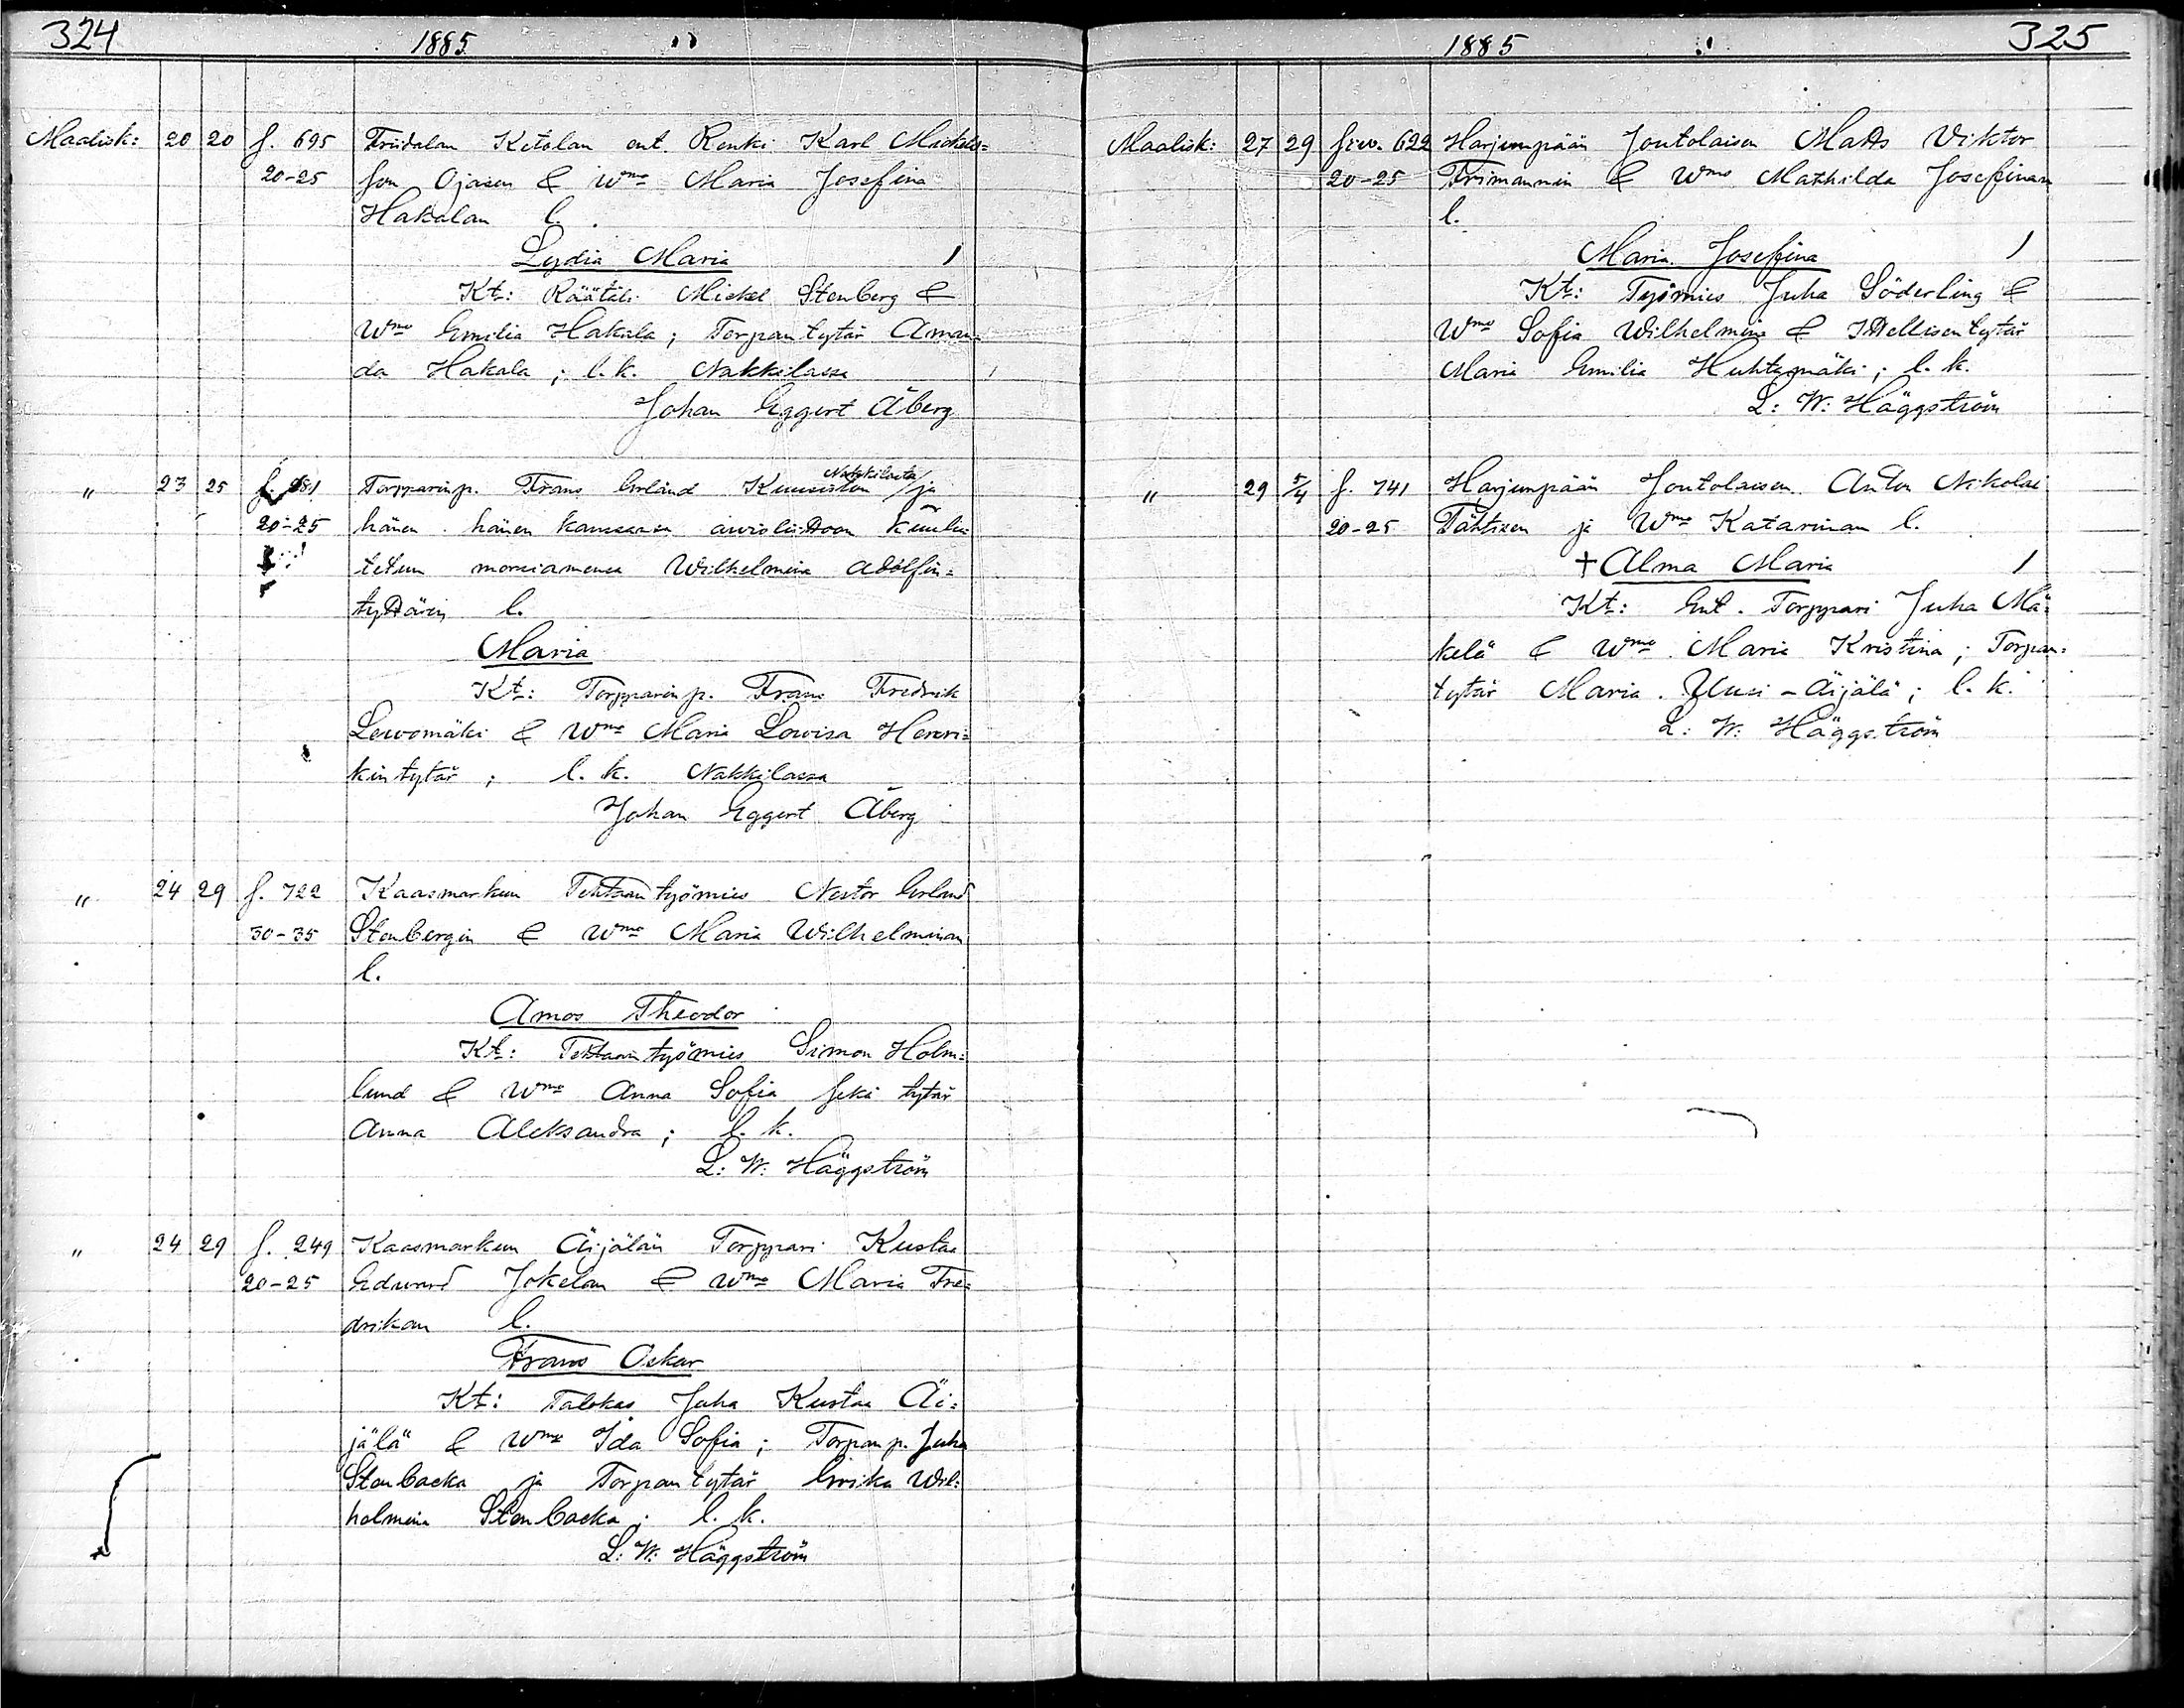 324
1885
Maalisk: 20 20 f. 695 Friidalan Ketolan ent. Renki Karl Mickels=
20-25 son Ojasen & Wmo Maria Josefina
Hakalan l.
Lydia Maria 1
Kt: Räätäli Mickel Stenberg &
Wmo Emilia Hakala; Torpan tytär Aman=
da Hakala; l. k. Nakkilassa
Johan Eggert Åberg
" 23 25 f. 981 Torpparinp. Frans Erland Kuusiston Nakkilasta / ja
20-25 hänen hänen kanssansa aviosliittoon kuulu
tetun morsiamensa Wilhelmina Adolfin=
tyttären l.
Maria
Kt: Torpparin p. Frans Fredrik
Levomäki & Wmo Maria Lovisa Henri=
kin tytär; l. k. Nakkilassa
Johan Eggert Åberg
" 24 29 f. 722 Kaasmarkun Tehtaan työmies Nestor Erland
30-35 Stenbergin & Wmo Maria Wilhelminan
l.
Amos Theodor
Kt: Tehtaan työmies Simon Holm=
lund & Wmo Anna Sofia sekä tytär
Anna Aleksandra; l. k.
L: W: Häggström
" 24 29 f. 249 Kaasmarkun Äijälän Torppari Kustaa
20-25 Edvard Jokelan & Wmo Maria Fre=
drikan l.
Frans Oskar
Kt: Talokas Juha Kustaa Äi=
jälä & Wmo Ida Sofia; Torpan p. Juha
Stenbacka ja Torpan tytär Erika Wil=
helmina Stenbacka; l. k.
L: W: Häggström
1885
325
Maalisk: 27 29 622 Harjunpään Joutolaisen Matts Viktor
20-25 Frimannin & Wmo Mathilda Josefinan
l.
Maria Josefina 1
Kt: Työmies Juha Söderling &
Wmo Sofia Wilhelmina & Itellisen tytär
Maria Emilia Huhtamäki; l. k.
L: W: Häggström
" 29 5/4 f. 741 Harjunpään Joutolaisen Anton Nikolai
20-25 Tähtisen ja Wmo Katarinan l.
+ Alma Maria 1
Kt: Ent. Torppari Juha Mä=
kelä & Wmo Maria Kristina; Torpan=
tytär Maria Uusi-Äijälä; l. k.
L: W: Häggström